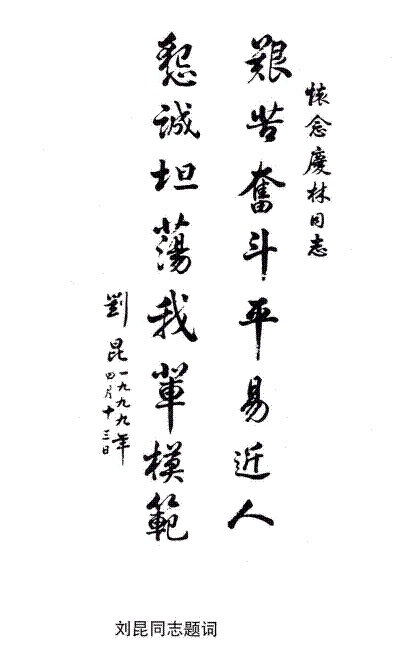 懷念慶林同志
艱苦奮斗平易近人
懇誠坦蕩我輩模範
劉昆一九九九年
四月十三日
刘昆同志题词